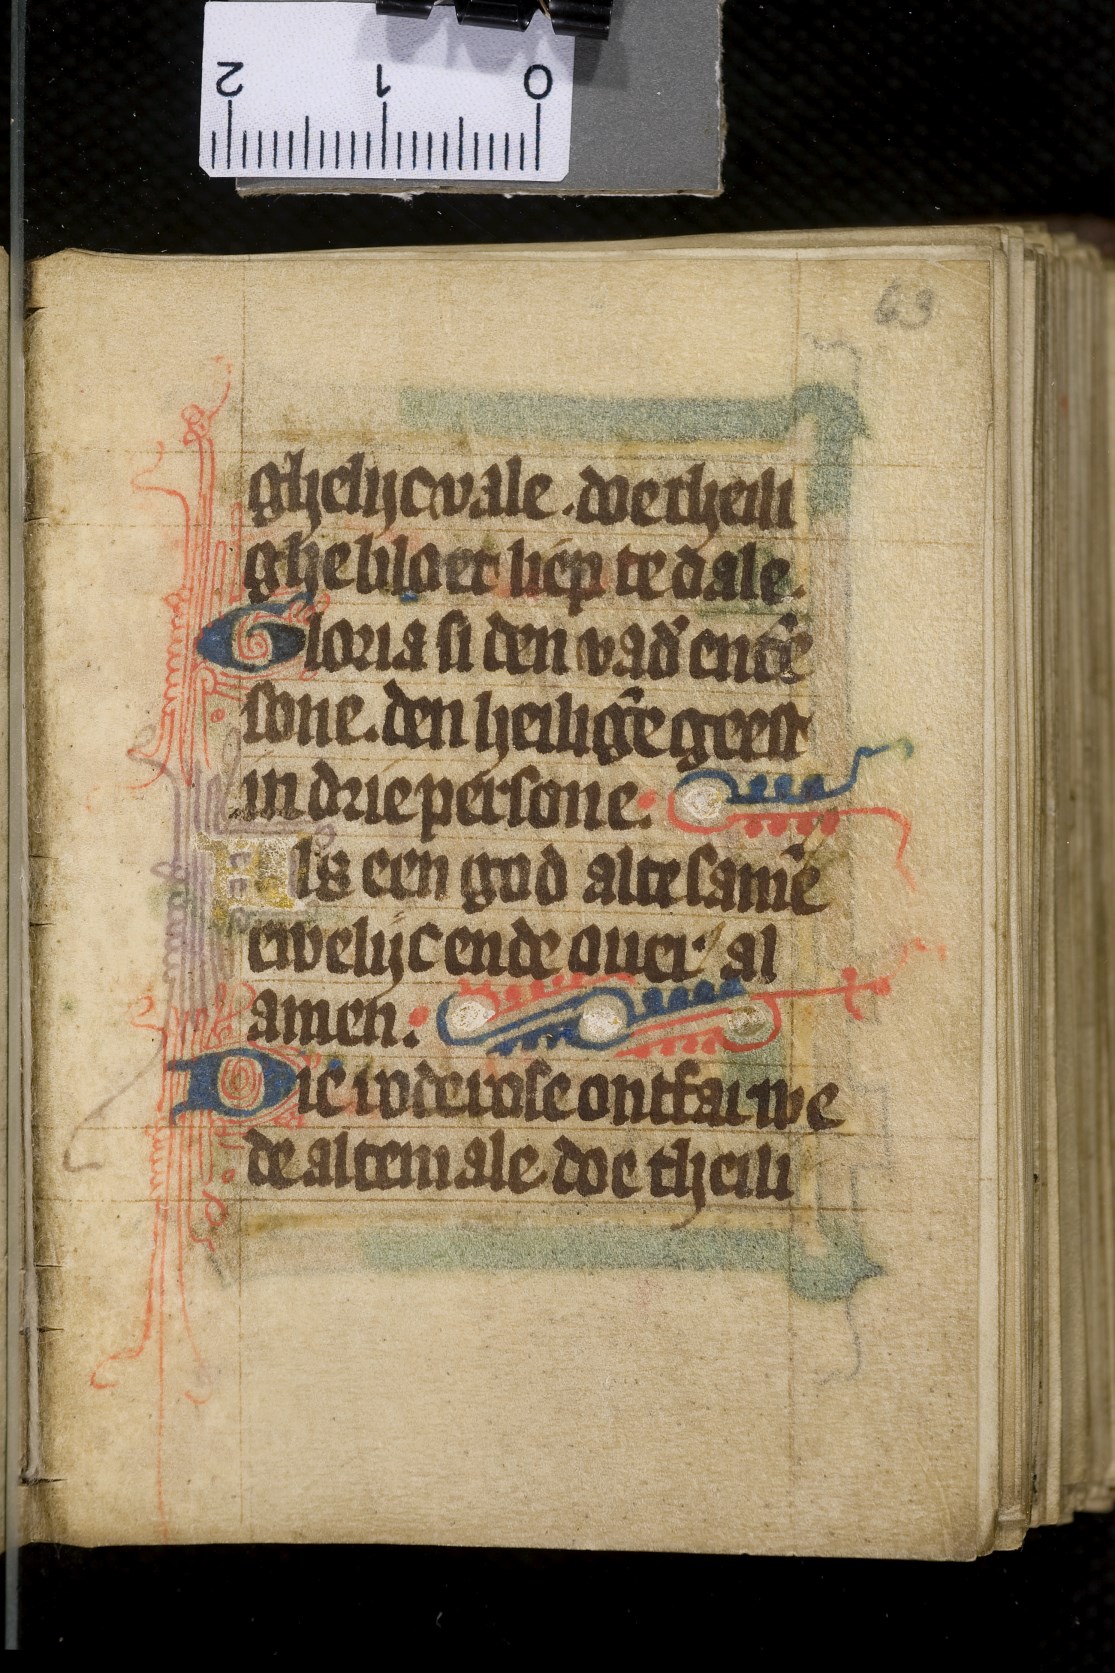 2 1 0
63
ghelijcwale .doe theili
ghe bloet liep te dale.
Gloria si den vad' en̄ dē
sone. den heiligē geest
in drie persone.
Als een god altesamē
ewelijc ende ouer al
amen.
Die rode rose ontfai we
de altemale doe theili